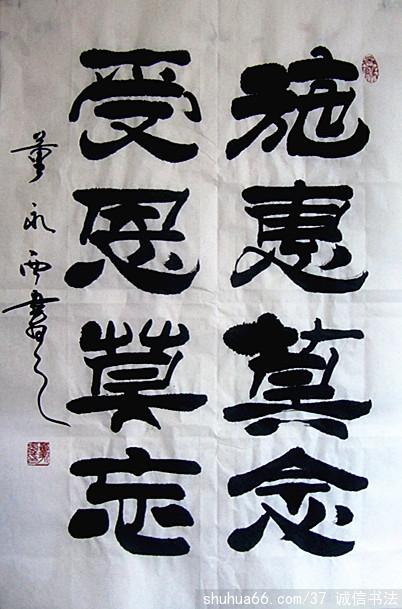 施惠莫念
受恩莫忘
董永西書之
shuhua66.com/37 诚信书法